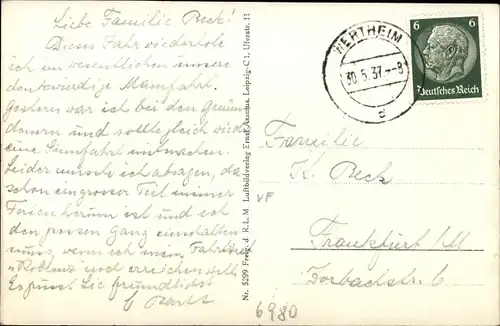 Liebe Familie Beck!
Dieses Jahr wiederhole
ich im wesentlichen unsere
denkwürdige Mainfahrt.
Gestern war ich bei den
und sollte gleich wieder
eine mitmachen.
Leider musste ich absagen, da
schon ein grosser Teil meiner
Ferien herum ist und ich
den grossen Gang einschalten
muss, wenn ich mein Fahrtziel
Koblenz noch erreichen will.
Es grüsst Sie freundlichst
Nr. 5299 Freig. d. R.L.M. Luftbildverlag Ernst Assmus, Leipzig-C 1, Uferstr. 11
WERTHEIM
30.5.37.--8
d
6 6
Deutsches Reich
Familie
K. Beck
VF
Frankfurt /M
6
6980